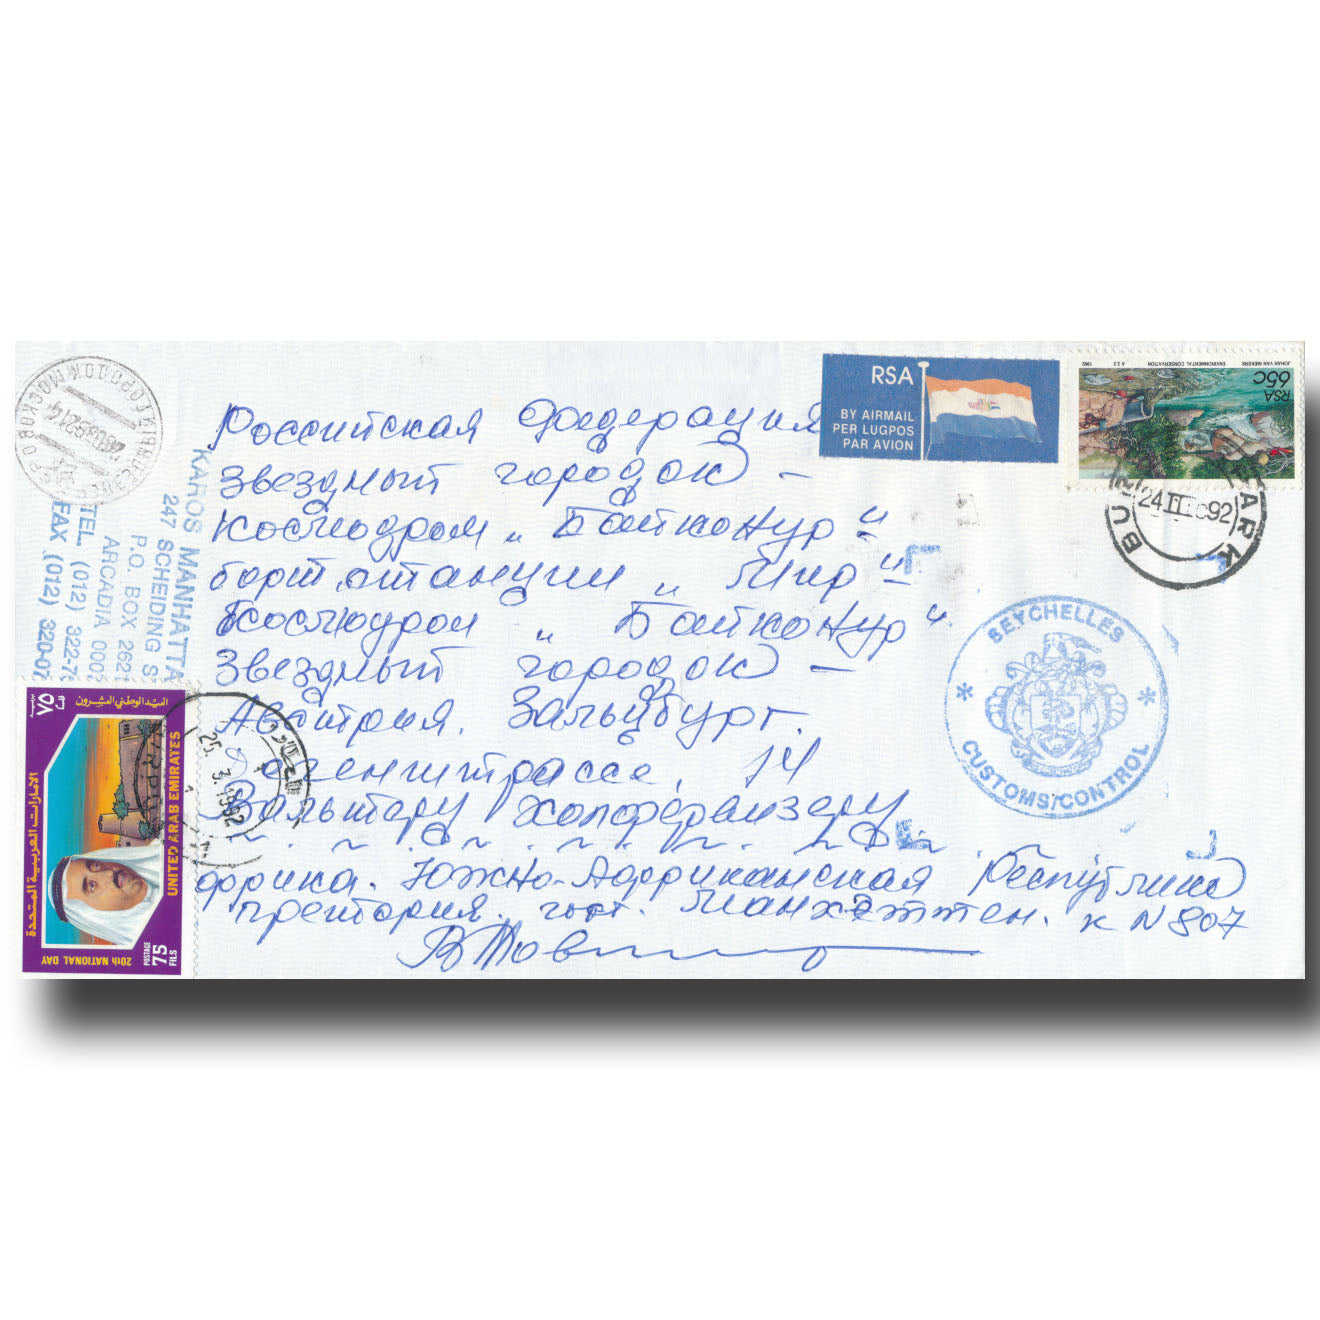 Российская Федерация
Звездный городок -
Космодром „Байконур“
борт останции „Мир“.
Космодром „Байконур“.
Звездный городок -
Австрия. Зальцбург.
14
Вальтеру Холферанзеру
Африка. Южно-Африканская Республика
Претория. гост. Манхэттен. к N 807
RSA
BY AIRMAIL
PER LUGPOS
PAR AVION
RSA
65C
JOHAN VAN NIEKERK
ENVIRONMENTAL CONSERVATION
A 2.3
1992
24 II 92
SEYCHELLES
CUSTOMS/CONTROL
KAROS MANHATTA
247 SCHEIDING S
P.O. BOX 262
ARCADIA 000
TEL. (012) 322-7
FAX (012) 320-0
العيد الوطني العشرون
٧٥
فلسا
الامارات العربية المتحدة
UNITED ARAB EMIRATES
20th NATIONAL DAY
POSTAGE
75
FILS
25.3.1992